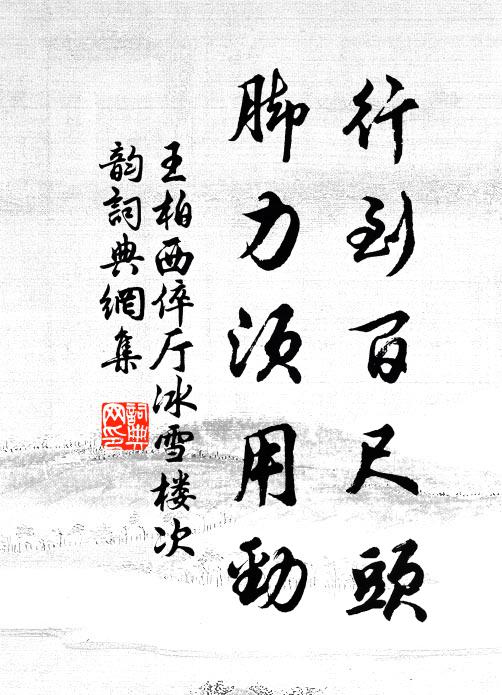 行到百尺頭
脚力須用勁
王柏西倅厅冰雪楼次
韵詞典網集
詞典網印